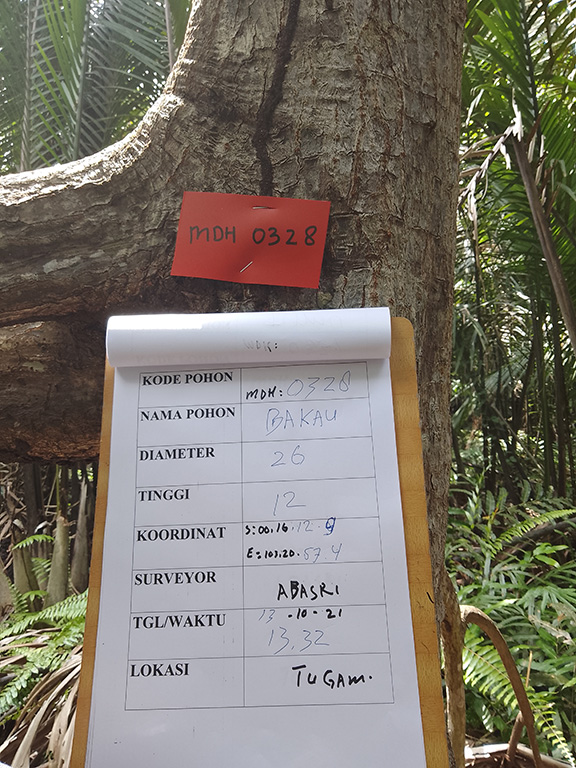 MDH 0328
KODE POHON MDH: 0328
NAMA POHON BAKAU
DIAMETER 26
TINGGI 12
KOORDINAT S:00.16.12.9
E=103.20.57.4
SURVEYOR ABASRI
TGL/WAKTU 13-10-21
13.32
LOKASI TUGAM.